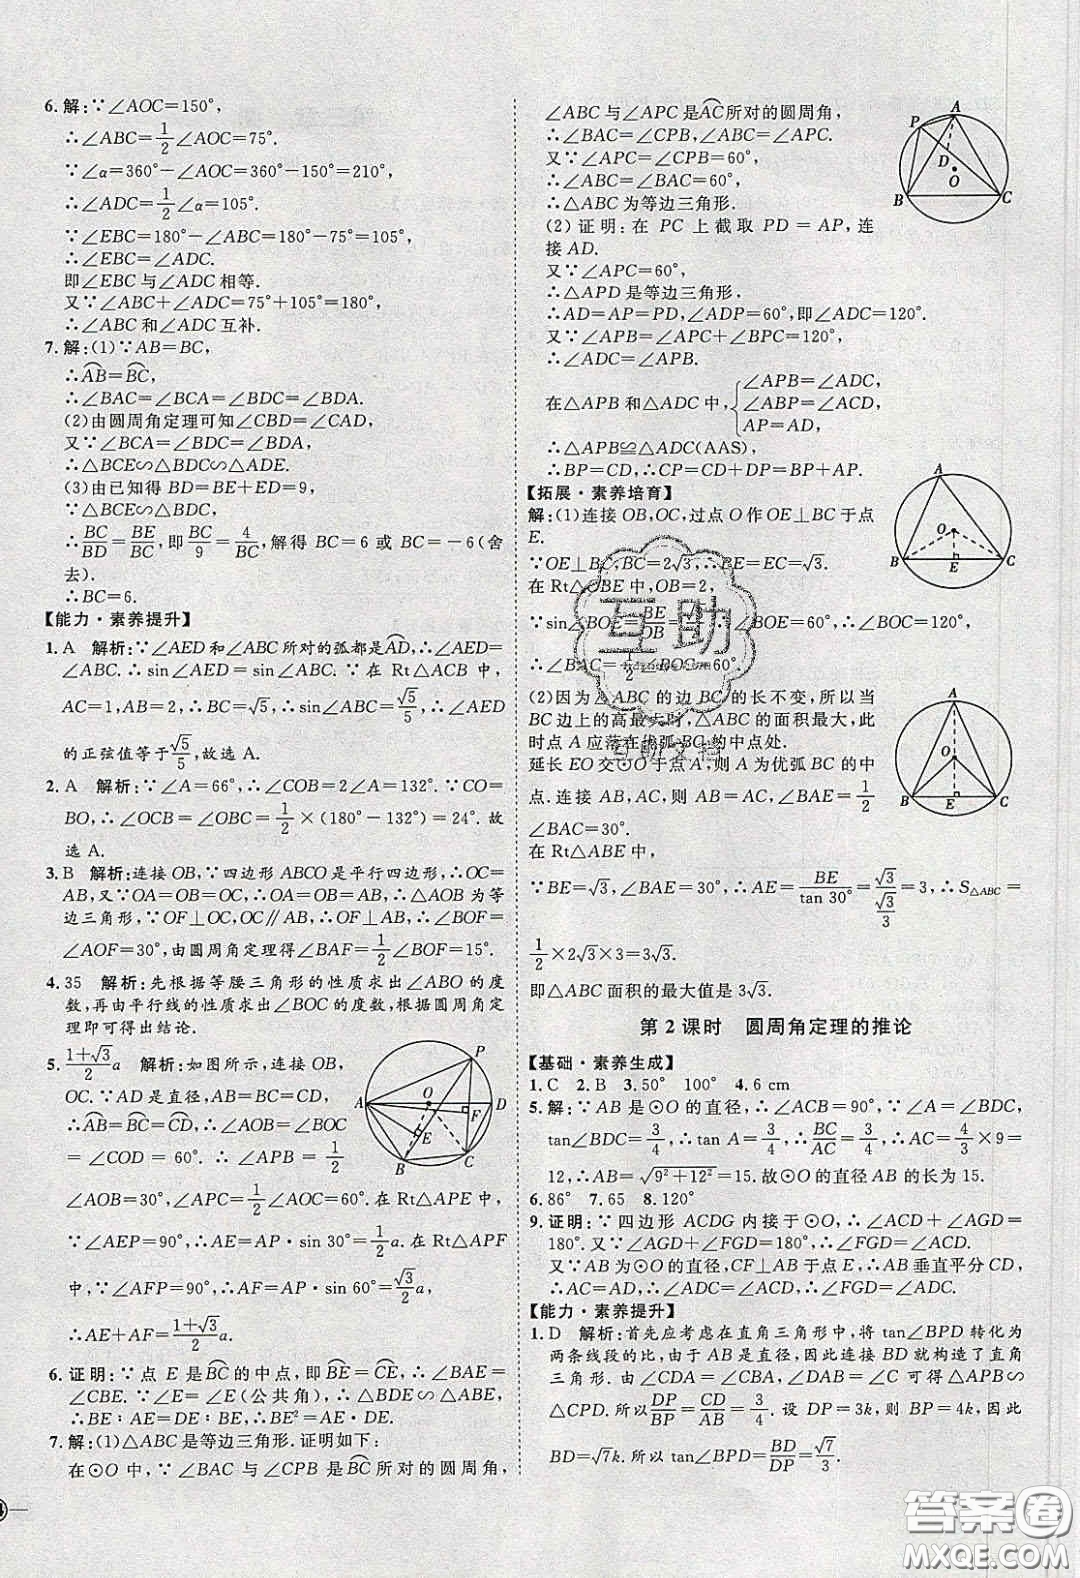 6. 解:∵∠AOC=150°,
∴∠ABC=1/2∠AOC=75°.
∵∠α=360°-∠AOC=360°-150°=210°,
∴∠ADC=1/2∠α=105°.
∵∠EBC=180°-∠ABC=180°-75°=105°,
∴∠EBC=∠ADC.
即∠EBC与∠ADC相等.
又∵∠ABC+∠ADC=75°+105°=180°,
∴∠ABC和∠ADC互补.
7. 解:(1)∵AB=BC,
∴⌒AB=⌒BC,
∴∠BAC=∠BCA=∠BDC=∠BDA.
(2)由圆周角定理可知∠CBD=∠CAD,
又∵∠BCA=∠BDC=∠BDA,
∴△BCE∽△BDC∽△ADE.
(3)由已知得BD=BE+ED=9.
∵△BDC∽△BCE,
∴BC/BD=BE/BC,即BC/9=4/BC,解得BC=6或BC=-6(舍
去).
∴BC=6.
【能力·素养提升】
1. A 解析:∵∠AED和∠ABC所对的弧都是⌒AD,∴∠AED=
∠ABC.∴sin∠AED=sin∠ABC.∵在Rt△ACB中,
AC=1,AB=2,∴BC=√5,∴sin∠ABC=√5/5,∴∠AED
的正弦值等于√5/5,故选A.
2. A 解析:∵∠A=66°,∴∠COB=2∠A=132°.∵CO=
BO,∴∠OCB=∠OBC=1/2×(180°-132°)=24°.故
选A.
3. B 解析:连接OB,∵四边形ABCO是平行四边形,∴OC=
AB,又∵OA=OB=OC,∴OA=OB=AB,∴△AOB为等
边三角形,∵OF⊥OC,OC∥AB,∴OF⊥AB,∴∠BOF=
∠AOF=30°,由圆周角定理得∠BAF=1/2∠BOF=15°.
4. 35 解析:先根据等腰三角形的性质求出∠ABO的度
数,再由平行线的性质求出∠BOC的度数,根据圆周角定
理即可得出结论.
5. (1+√3)/2 a 解析:如图所示,连接OB,
OC.∵AD是直径,AB=BC=CD,
∴⌒AB=⌒BC=⌒CD,∴∠AOB=∠BOC
=∠COD=60°.∴∠APB=1/2
∠AOB=30°,∠APC=1/2∠AOC=60°.在Rt△APE中,
∵∠AEP=90°,∴AE=AP·sin 30°=1/2a.在Rt△APF
中,∵∠AFP=90°,∴AF=AP·sin 60°=√3/2a,
∴AE+AF=(1+√3)/2 a.
6. 证明:∵点E是⌒BC的中点,即⌒BE=⌒CE,∴∠BAE=
∠CBE.∵∠E=∠E(公共角),∴△BDE∽△ABE,
∴BE∶AE=DE∶BE,∴BE²=AE·DE.
7. 解:(1)△ABC是等边三角形.证明如下:
在⊙O中,∵∠BAC与∠CPB是⌒BC所对的圆周角,
∠ABC与∠APC是⌒AC所对的圆周角,
∴∠BAC=∠CPB,∠ABC=∠APC.
又∵∠APC=∠CPB=60°,
∴∠ABC=∠BAC=60°,
∴△ABC为等边三角形.
(2)证明:在PC上截取PD=AP,连
接AD.
又∵∠APC=60°,
∴△APD是等边三角形,
∴AD=AP=PD,∠ADP=60°,即∠ADC=120°.
又∵∠APB=∠APC+∠BPC=120°,
∴∠ADC=∠APB.
在△APB和△ADC中,{∠APB=∠ADC,
∠ABP=∠ACD,
AP=AD,
∴△APB≌△ADC(AAS),
∴BP=CD,∴CP=BP+AP.
【拓展·素养培育】
解:(1)连接OB,OC,过点O作OE⊥BC于点
E.
∵OE⊥BC,BC=2√3,∴BE=EC=√3.
在Rt△OBE中,OB=2,
∵sin∠BOE=BE/OB=√3/2,∴∠BOE=60°,∴∠BOC=120°,
∴∠BAC=1/2∠BOC=60°.
(2)因为△ABC的边BC的长不变,所以当
BC边上的高最大时,△ABC的面积最大,此
时点A应落在优弧BC的中点处.
延长EO交⊙O于点A,则A为优弧BC的中
点.连接AB,AC,则AB=AC,∠BAE=1/2
∠BAC=30°.
在Rt△ABE中,
∵BE=√3,∠BAE=30°,∴AE=BE/tan 30°=√3/(√3/3)=3,∴S△ABC=
1/2×2√3×3=3√3.
即△ABC面积的最大值是3√3.
第2课时 圆周角定理的推论
【基础·素养生成】
1. C 2. B 3. 50° 100° 4. 6 cm
5. 解:∵AB是⊙O的直径,∴∠ACB=90°,∵∠A=∠BDC,
tan∠BDC=3/4,∴tan A=3/4,∴BC/AC=3/4,∴AC=4/3×9=
12,∴AB=√(9²+12²)=15.故⊙O的直径AB的长为15.
6. 86° 7. 65 8. 120°
9. 证明:∵四边形ACDG内接于⊙O,∴∠ACD+∠AGD=
180°.又∵∠AGD+∠FGD=180°,∴∠FGD=∠ACD.
又∵AB为⊙O的直径,CF⊥AB于点E,∴AB垂直平分CD,
∴AC=AD,∴∠ACD=∠ADC,∴∠FGD=∠ADC.
【能力·素养提升】
1. D 解析:首先应考虑在直角三角形中,将tan∠BPD转化为
两条线段的比,由于AB是直径,因此连接BD就构造了直角
三角形.由∠CDA=∠CBA,∠DCB=∠DAB可得△PCD∽
△PAB.所以DP/BP=CD/AB=3/4.设DP=3k,BP=4k,因此
BD=√7k.所以tan∠BPD=BD/DP=√7/3.
A
P
D
O
B
C
A
O
B
E
C
A
O
B
E
C
P
A
O
D
F
E
B
C
互助
互助文档
答案圈
MXQE.COM